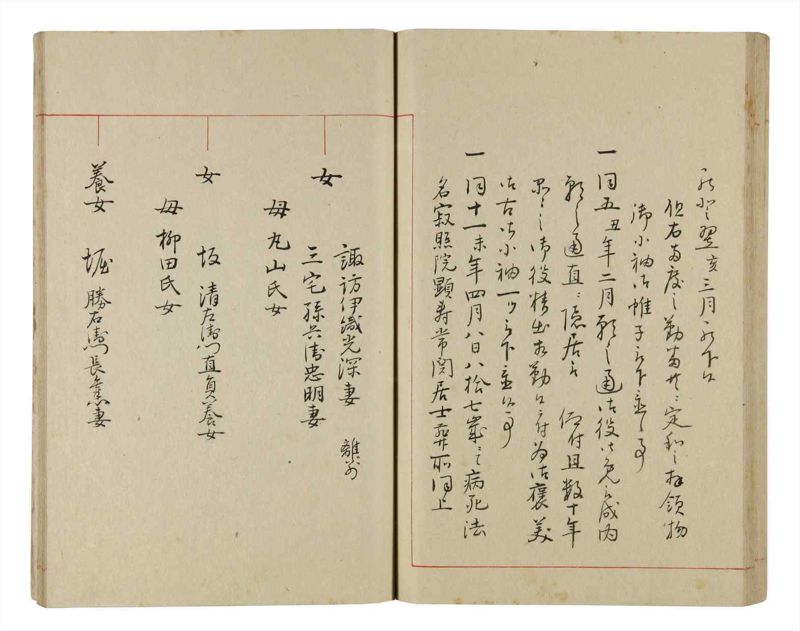 翌亥三月
但右両度之勤番共ニ定和之拝領物
御小袖御帷子被下置之事
一同五丑年二月願之通御役御免被成内
願之通直ニ隠居被 仰付且数十年
御役精出相勤候ニ付為御褒美
御古御小袖一ツ被下置候事
一同十一未年四月八日八拾七歳ニ而病死法
名寂照院顕寿常関居士葬所同上
女
諏訪伊織光深妻 離別
三宅孫兵衛忠明妻
母丸山氏女
女
坂清左衛門直員養女
母柳田氏女
養女
堀勝右衛門長憙妻